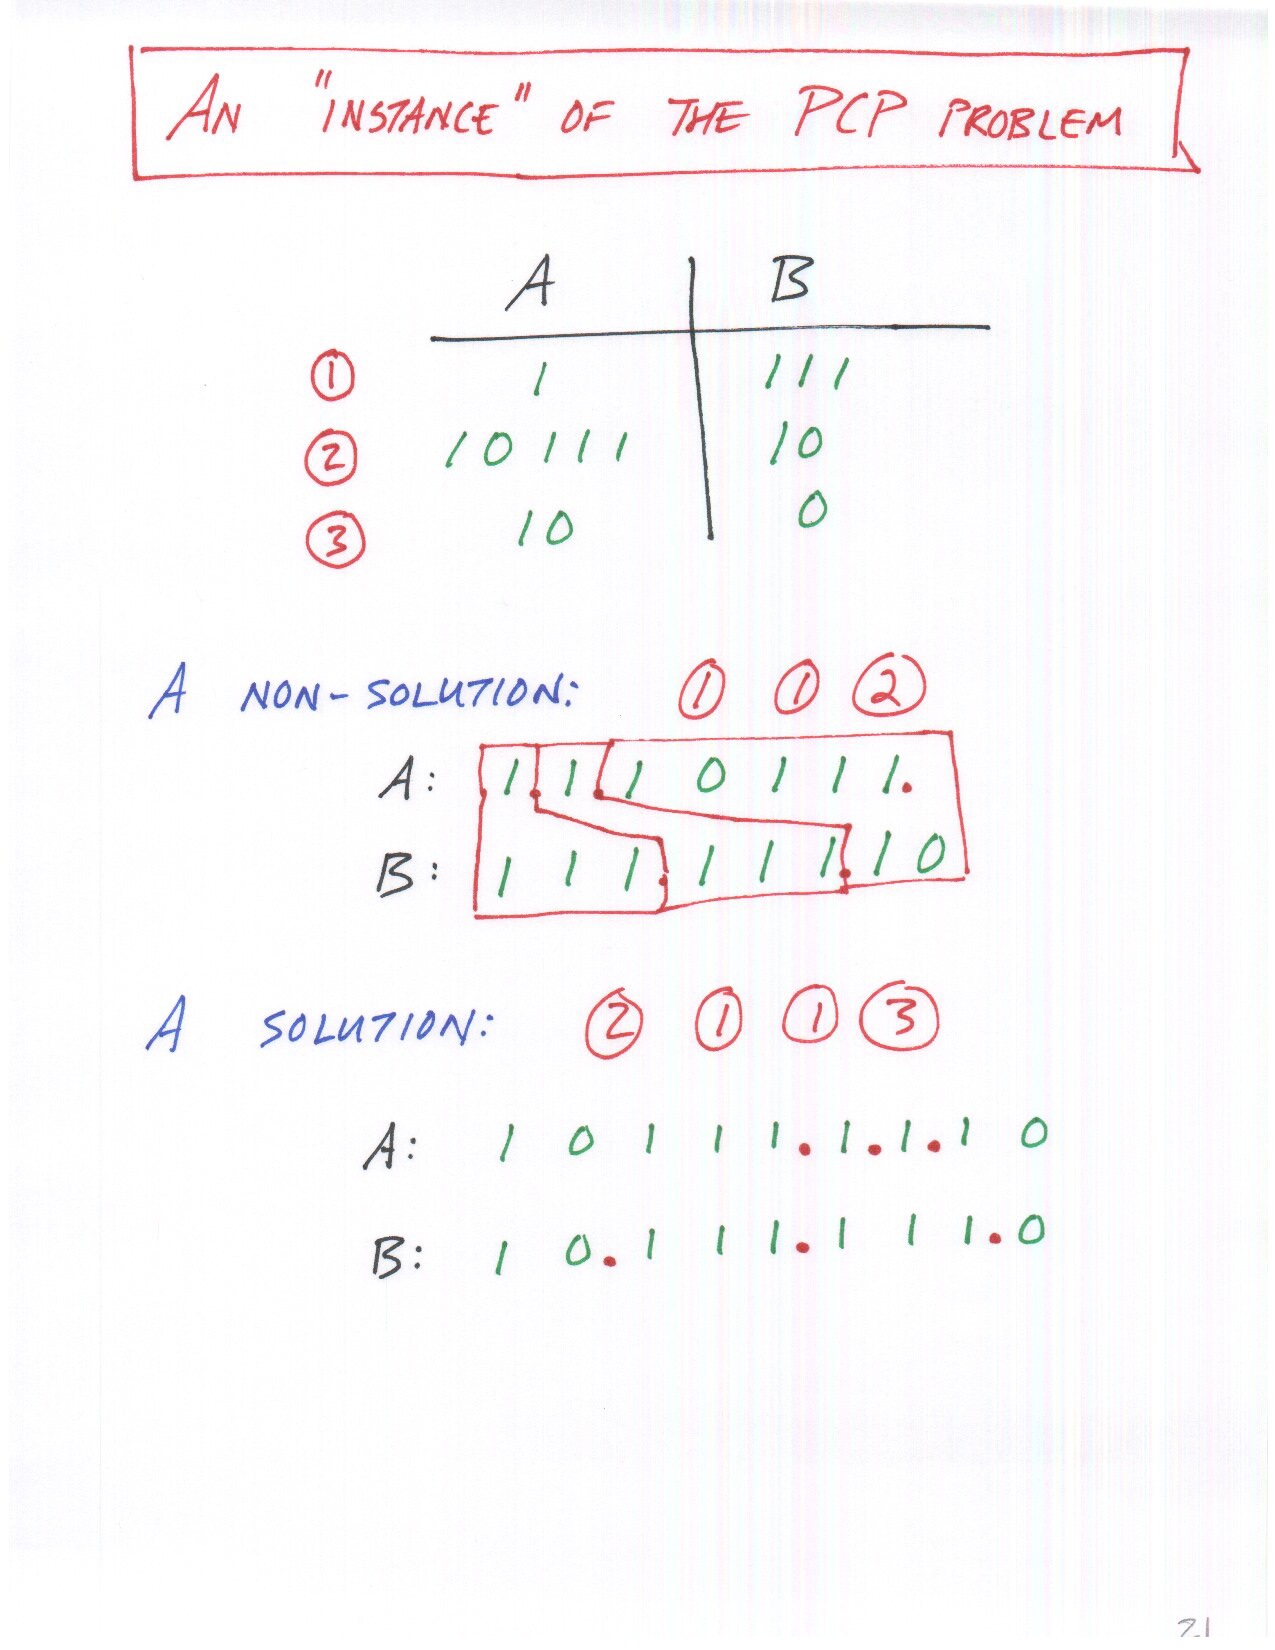 AN "INSTANCE" OF THE PCP PROBLEM
A B
1 1 111
2 10111 10
3 10 0
A NON-SOLUTION: 1 1 2
A: 1.1.10111.
B: 111.111.10
A SOLUTION: 2 1 1 3
A: 10111.1.1.10
B: 10.111.111.0